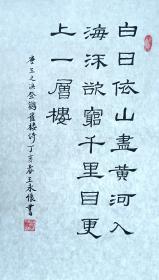 白日依山盡黃河入
海流欲窮千里目更
上一層樓
唐王之渙登鸛雀樓詩丁亥春王永懷書